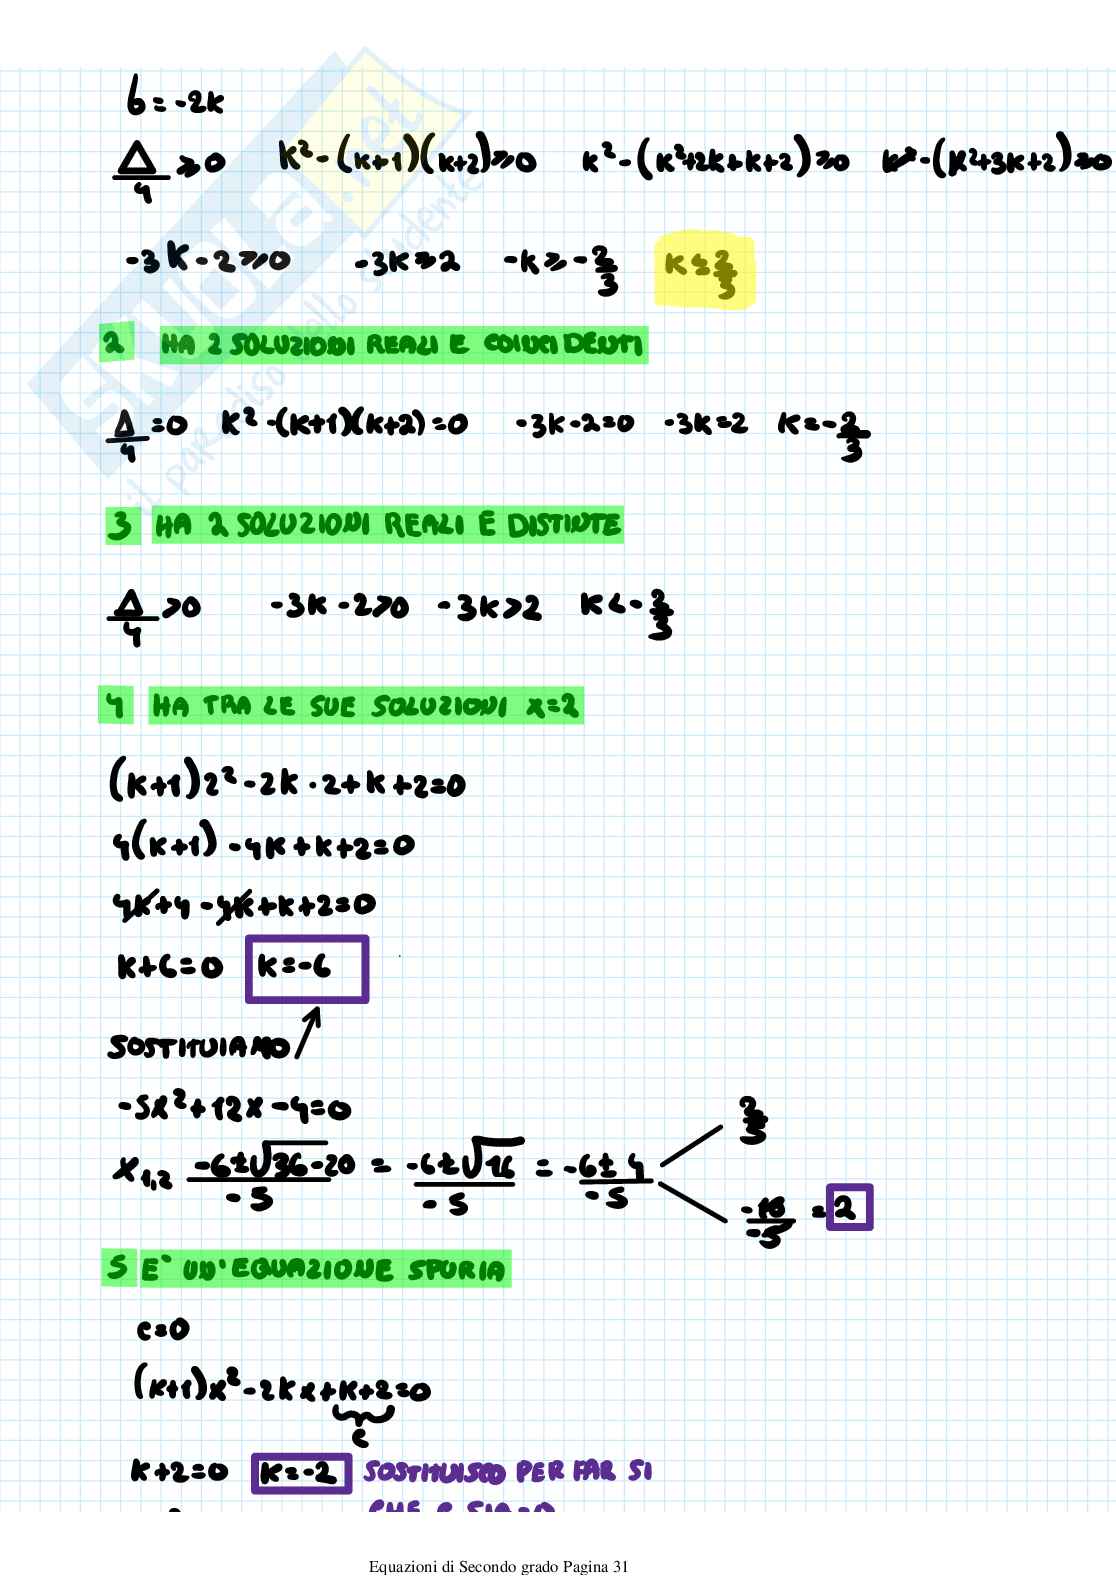 b = -2k
Δ/4 ⩾ 0 k² - (k+1)(k+2) ⩾ 0 k² - (k²+2k+k+2) ⩾ 0 k² - (k²+3k+2) ⩾ 0
-3k - 2 ⩾ 0 -3k ⩾ 2 -k ⩾ -2/3 k ≤ 2/3
2 HA 2 SOLUZIONI REALI E COINCIDENTI
Δ/4 = 0 k² - (k+1)(k+2) = 0 -3k - 2 = 0 -3k = 2 k = -2/3
3 HA 2 SOLUZIONI REALI E DISTINTE
Δ/4 > 0 -3k - 2 > 0 -3k > 2 k < -2/3
4 HA TRA LE SUE SOLUZIONI x=2
(k+1)2² - 2k · 2 + k + 2 = 0
4(k+1) - 4k + k + 2 = 0
4k + 4 - 4k + k + 2 = 0
k + 6 = 0 k = -6
SOSTITUIAMO
-5x² + 12x - 4 = 0
x1,2 -6±√36-20/-5 = -6±√16/-5 = -6±4/-5
2/5
-10/-5 = 2
5 E' UN'EQUAZIONE SPURIA
c = 0
(k+1)x² - 2kx + k + 2 = 0
c
k + 2 = 0 k = -2 SOSTITUISCO PER FAR SI
CHE C SIA = 0
SKUOLA.net
il paradiso dello studente
Equazioni di Secondo grado Pagina 31